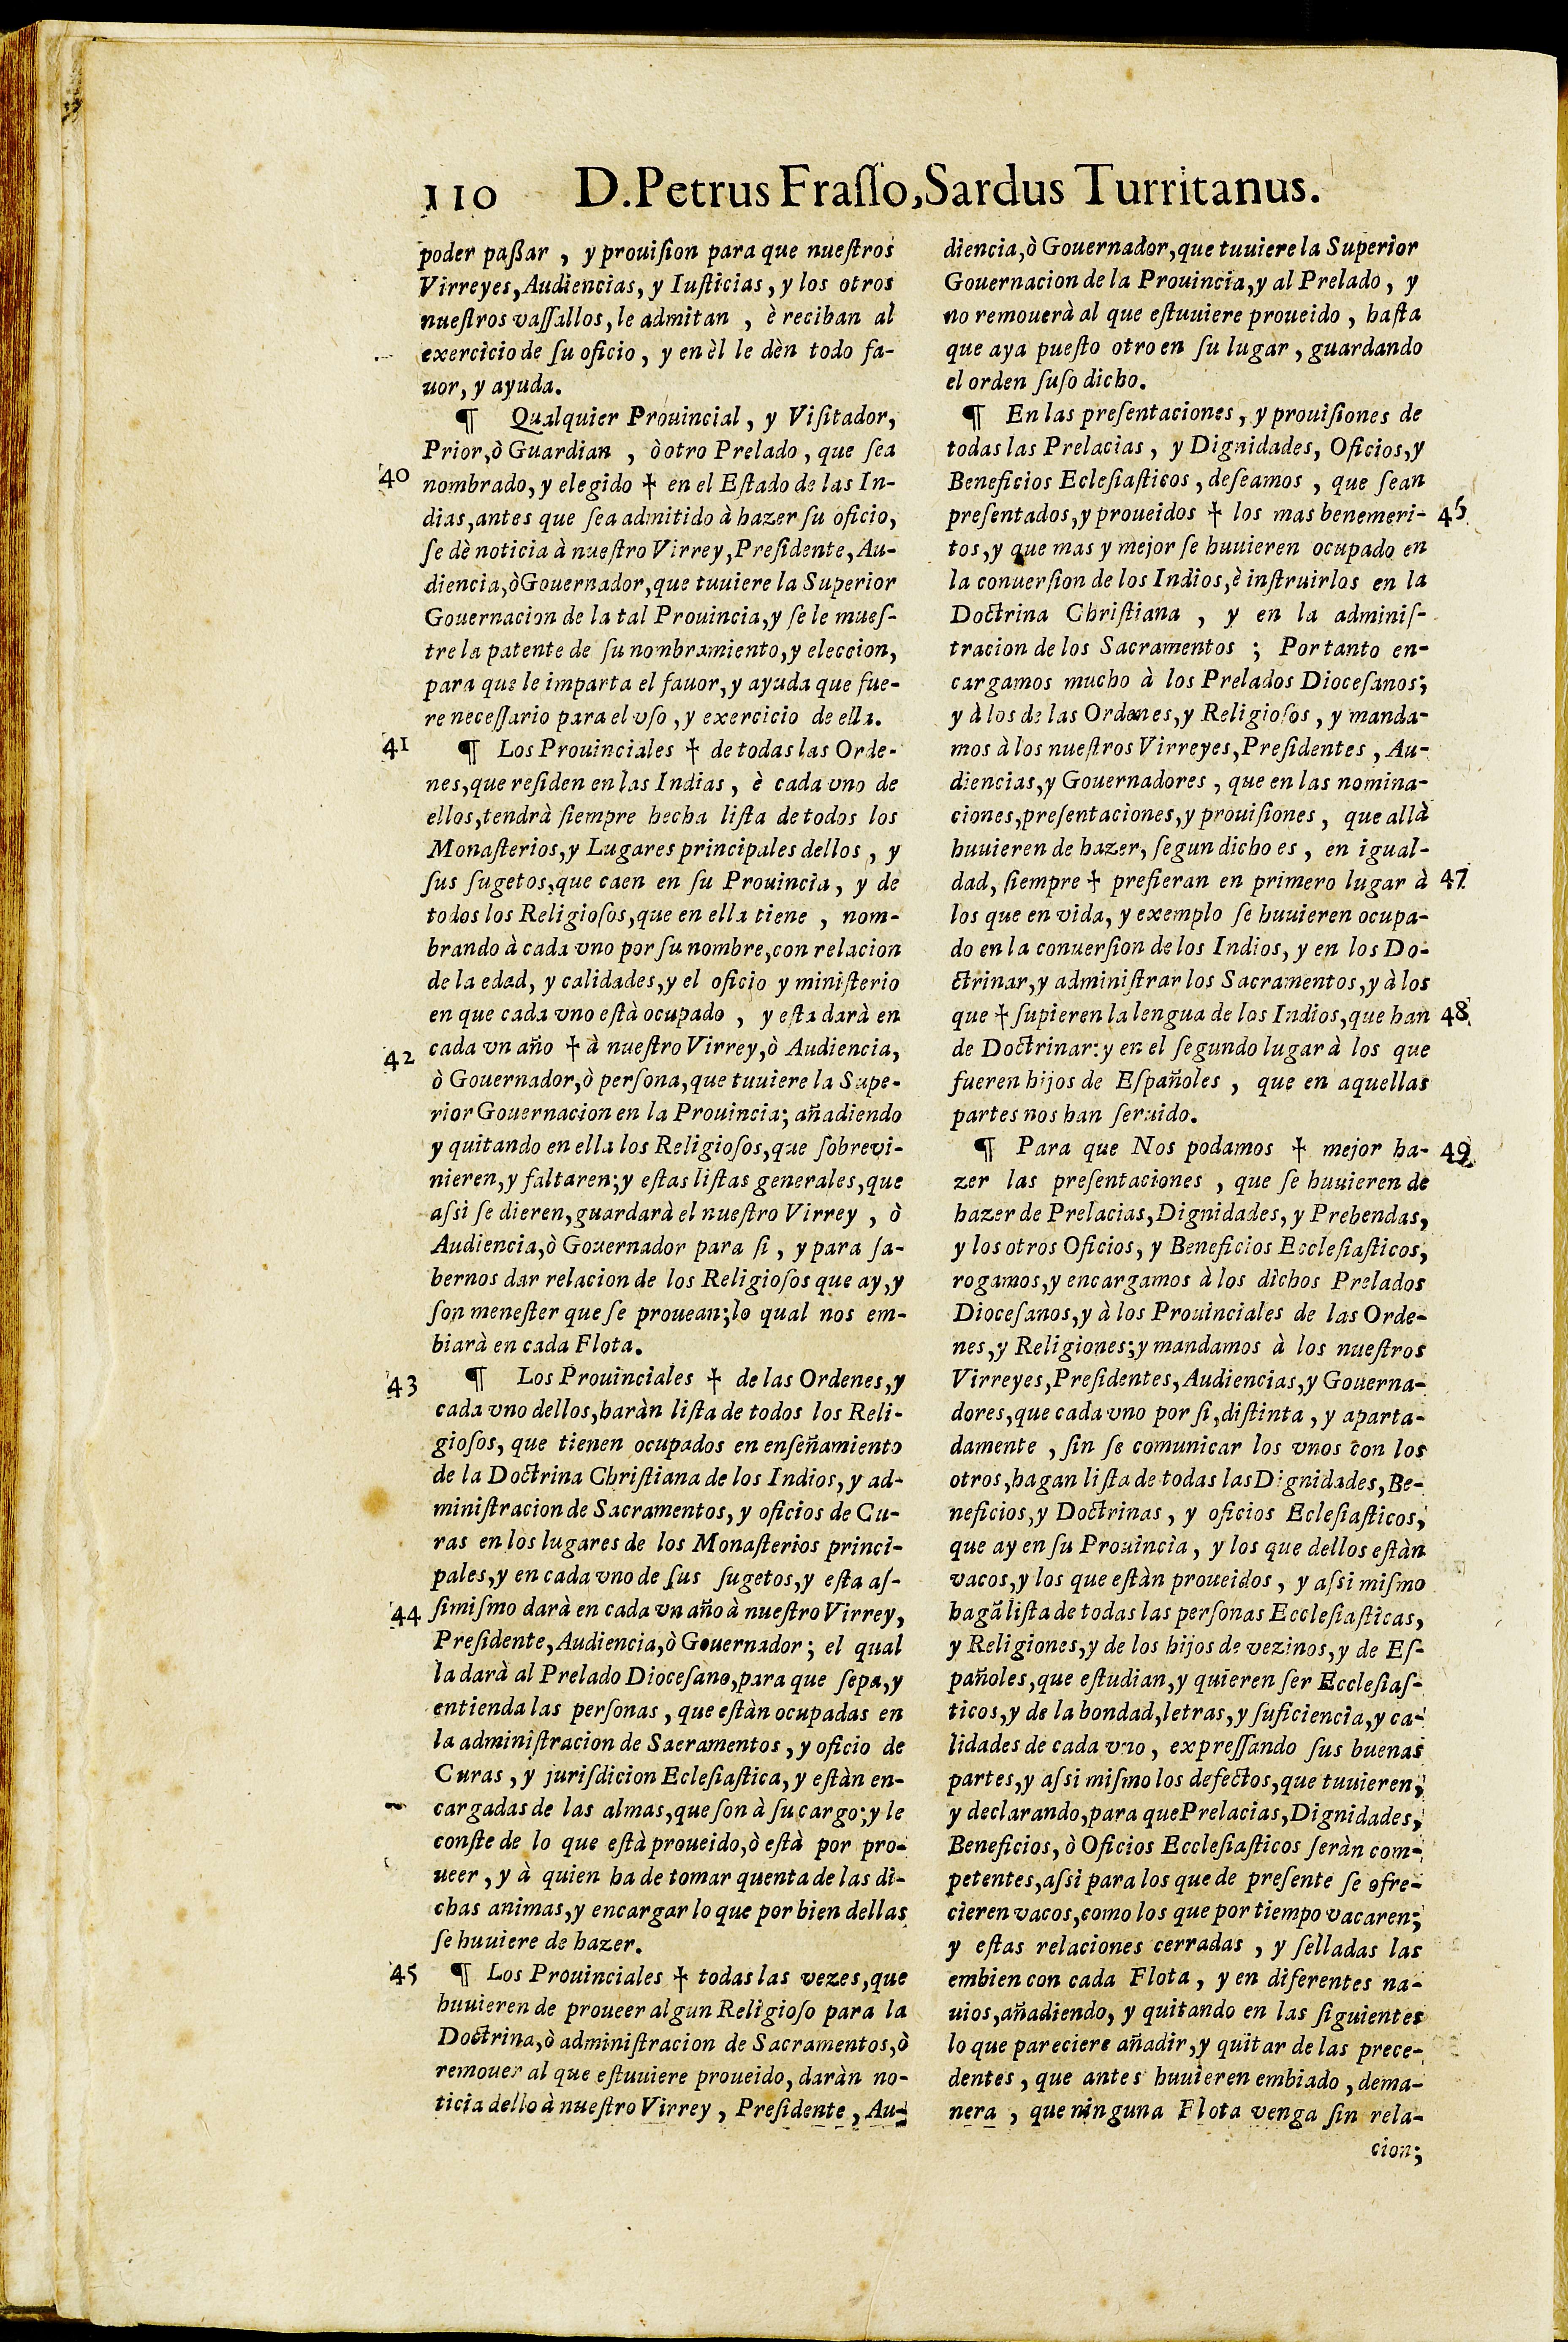 110 D. Petrus Fraſſo, Sardus Turritanus.
poder paßar , y prouiſion para que nueſtros
Virreyes, Audiencias, y Iuſticias, y los otros
nueſtros vaſſallos, le admitan , è reciban al
exercicio de ſu oficio, y en èl le dèn todo fa-
uor, y ayuda.
¶ Qualquier Prouincial, y Viſitador,
Prior, ò Guardian , ò otro Prelado, que ſea
40 nombrado, y elegido † en el Eſtado de las In-
dias, antes que ſea admitido à hazer ſu oficio,
ſe dè noticia à nueſtro Virrey, Preſidente, Au-
diencia, ò Gouernador, que tuuiere la Superior
Gouernacion de la tal Prouincia, y ſe le mueſ-
tre la patente de ſu nombramiento, y eleccion,
para que le imparta el fauor, y ayuda que fue-
re neceſſario para el vſo, y exercicio de ella.
41 ¶ Los Prouinciales † de todas las Orde-
nes, que reſiden en las Indias, è cada vno de
ellos, tendrà ſiempre hecha liſta de todos los
Monaſterios, y Lugares principales dellos, y
ſus ſugetos, que caen en ſu Prouincia, y de
todos los Religioſos, que en ella tiene , nom-
brando à cada vno por ſu nombre, con relacion
de la edad, y calidades, y el oficio y miniſterio
en que cada vno eſtà ocupado , y eſta darà en
42 cada vn año † à nueſtro Virrey, ò Audiencia,
ò Gouernador, ò perſona, que tuuiere la Supe-
rior Gouernacion en la Prouincia; añadiendo
y quitando en ella los Religioſos, que ſobrevi-
nieren, y faltaren; y eſtas liſtas generales, que
aſsi ſe dieren, guardarà el nueſtro Virrey , ò
Audiencia, ò Gouernador para ſi, y para ſa-
bernos dar relacion de los Religioſos que ay, y
ſon meneſter que ſe prouean; lo qual nos em-
biarà en cada Flota.
43 ¶ Los Prouinciales † de las Ordenes, y
cada vno dellos, haràn liſta de todos los Reli-
gioſos, que tienen ocupados en enſeñamiento
de la Doctrina Chriſtiana de los Indios, y ad-
miniſtracion de Sacramentos, y oficios de Cu-
ras en los lugares de los Monaſterios princi-
pales, y en cada vno de ſus ſugetos, y eſta aſ-
44 ſimiſmo darà en cada vn año à nueſtro Virrey,
Preſidente, Audiencia, ò Gouernador; el qual
la darà al Prelado Dioceſano, para que ſepa, y
entienda las perſonas, que eſtàn ocupadas en
la adminiſtracion de Saeramentos, y oficio de
Curas, y juriſdicion Ecleſiaſtica, y eſtàn en-
cargadas de las almas, que ſon à ſu cargo; y le
conſte de lo que eſtà proueido, ò eſtà por pro-
ueer, y à quien ha de tomar quenta de las di-
chas animas, y encargar lo que por bien dellas
ſe huuiere de hazer.
45 ¶ Los Prouinciales † todas las vezes, que
huuieren de proueer algun Religioſo para la
Doctrina, ò adminiſtracion de Sacramentos, ò
remouer al que eſtuuiere proueido, daràn no-
ticia dello à nueſtro Virrey, Preſidente, Au-
diencia, ò Gouernador, que tuuiere la Superior
Gouernacion de la Prouincia, y al Prelado, y
no remouerà al que eſtuuiere proueido, haſta
que aya pueſto otro en ſu lugar, guardando
el orden ſuſo dicho.
¶ En las preſentaciones, y prouiſiones de
todas las Prelacias, y Dignidades, Oficios, y
Beneficios Ecleſiaſticos, deſeamos , que ſean
preſentados, y proueidos † los mas benemeri- 46
tos, y que mas y mejor ſe huuieren ocupado en
la conuerſion de los Indios, è inſtruirlos en la
Doctrina Chriſtiana , y en la adminiſ-
tracion de los Sacramentos ; Por tanto en-
cargamos mucho à los Prelados Dioceſanos;
y à los de las Ordenes, y Religioſos, y manda-
mos à los nueſtros Virreyes, Preſidentes, Au-
diencias, y Gouernadores, que en las nomina-
ciones, preſentaciones, y prouiſiones, que allà
huuieren de hazer, ſegun dicho es, en igual-
dad, ſiempre † prefieran en primero lugar à 47
los que en vida, y exemplo ſe huuieren ocupa-
do en la conuerſion de los Indios, y en los Do-
ctrinar, y adminiſtrar los Sacramentos, y à los
que † ſupieren la lengua de los Indios, que han 48
de Doctrinar: y en el ſegundo lugar à los que
fueren hijos de Eſpañoles, que en aquellas
partes nos han ſeruido.
¶ Para que Nos podamos † mejor ha- 49
zer las preſentaciones , que ſe huuieren de
hazer de Prelacias, Dignidades, y Prebendas,
y los otros Oficios, y Beneficios Eccleſiaſticos,
rogamos, y encargamos à los dichos Prelados
Dioceſanos, y à los Prouinciales de las Orde-
nes, y Religiones; y mandamos à los nueſtros
Virreyes, Preſidentes, Audiencias, y Gouerna-
dores, que cada vno por ſi, diſtinta, y aparta-
damente , ſin ſe comunicar los vnos con los
otros, hagan liſta de todas las Dignidades, Be-
neficios, y Doctrinas, y oficios Ecleſiaſticos,
que ay en ſu Prouincia, y los que dellos eſtàn
vacos, y los que eſtàn proueidos, y aſsi miſmo
hagã liſta de todas las perſonas Eccleſiaſticas,
y Religiones, y de los hijos de vezinos, y de Eſ-
pañoles, que eſtudian, y quieren ſer Eccleſiaſ-
ticos, y de la bondad, letras, y ſuficiencia, y ca-
lidades de cada vno, expreſſando ſus buenas
partes, y aſsi miſmo los defectos, que tuuieren,
y declarando, para que Prelacias, Dignidades,
Beneficios, ò Oficios Eccleſiaſticos ſeràn com-
petentes, aſsi para los que de preſente ſe ofre-
cieren vacos, como los que por tiempo vacaren;
y eſtas relaciones cerradas , y ſelladas las
embien con cada Flota, y en diferentes na-
uios, añadiendo, y quitando en las ſiguientes
lo que pareciere añadir, y quitar de las prece-
dentes , que antes huuieren embiado, dema-
nera , que ninguna Flota venga ſin rela-
cion;